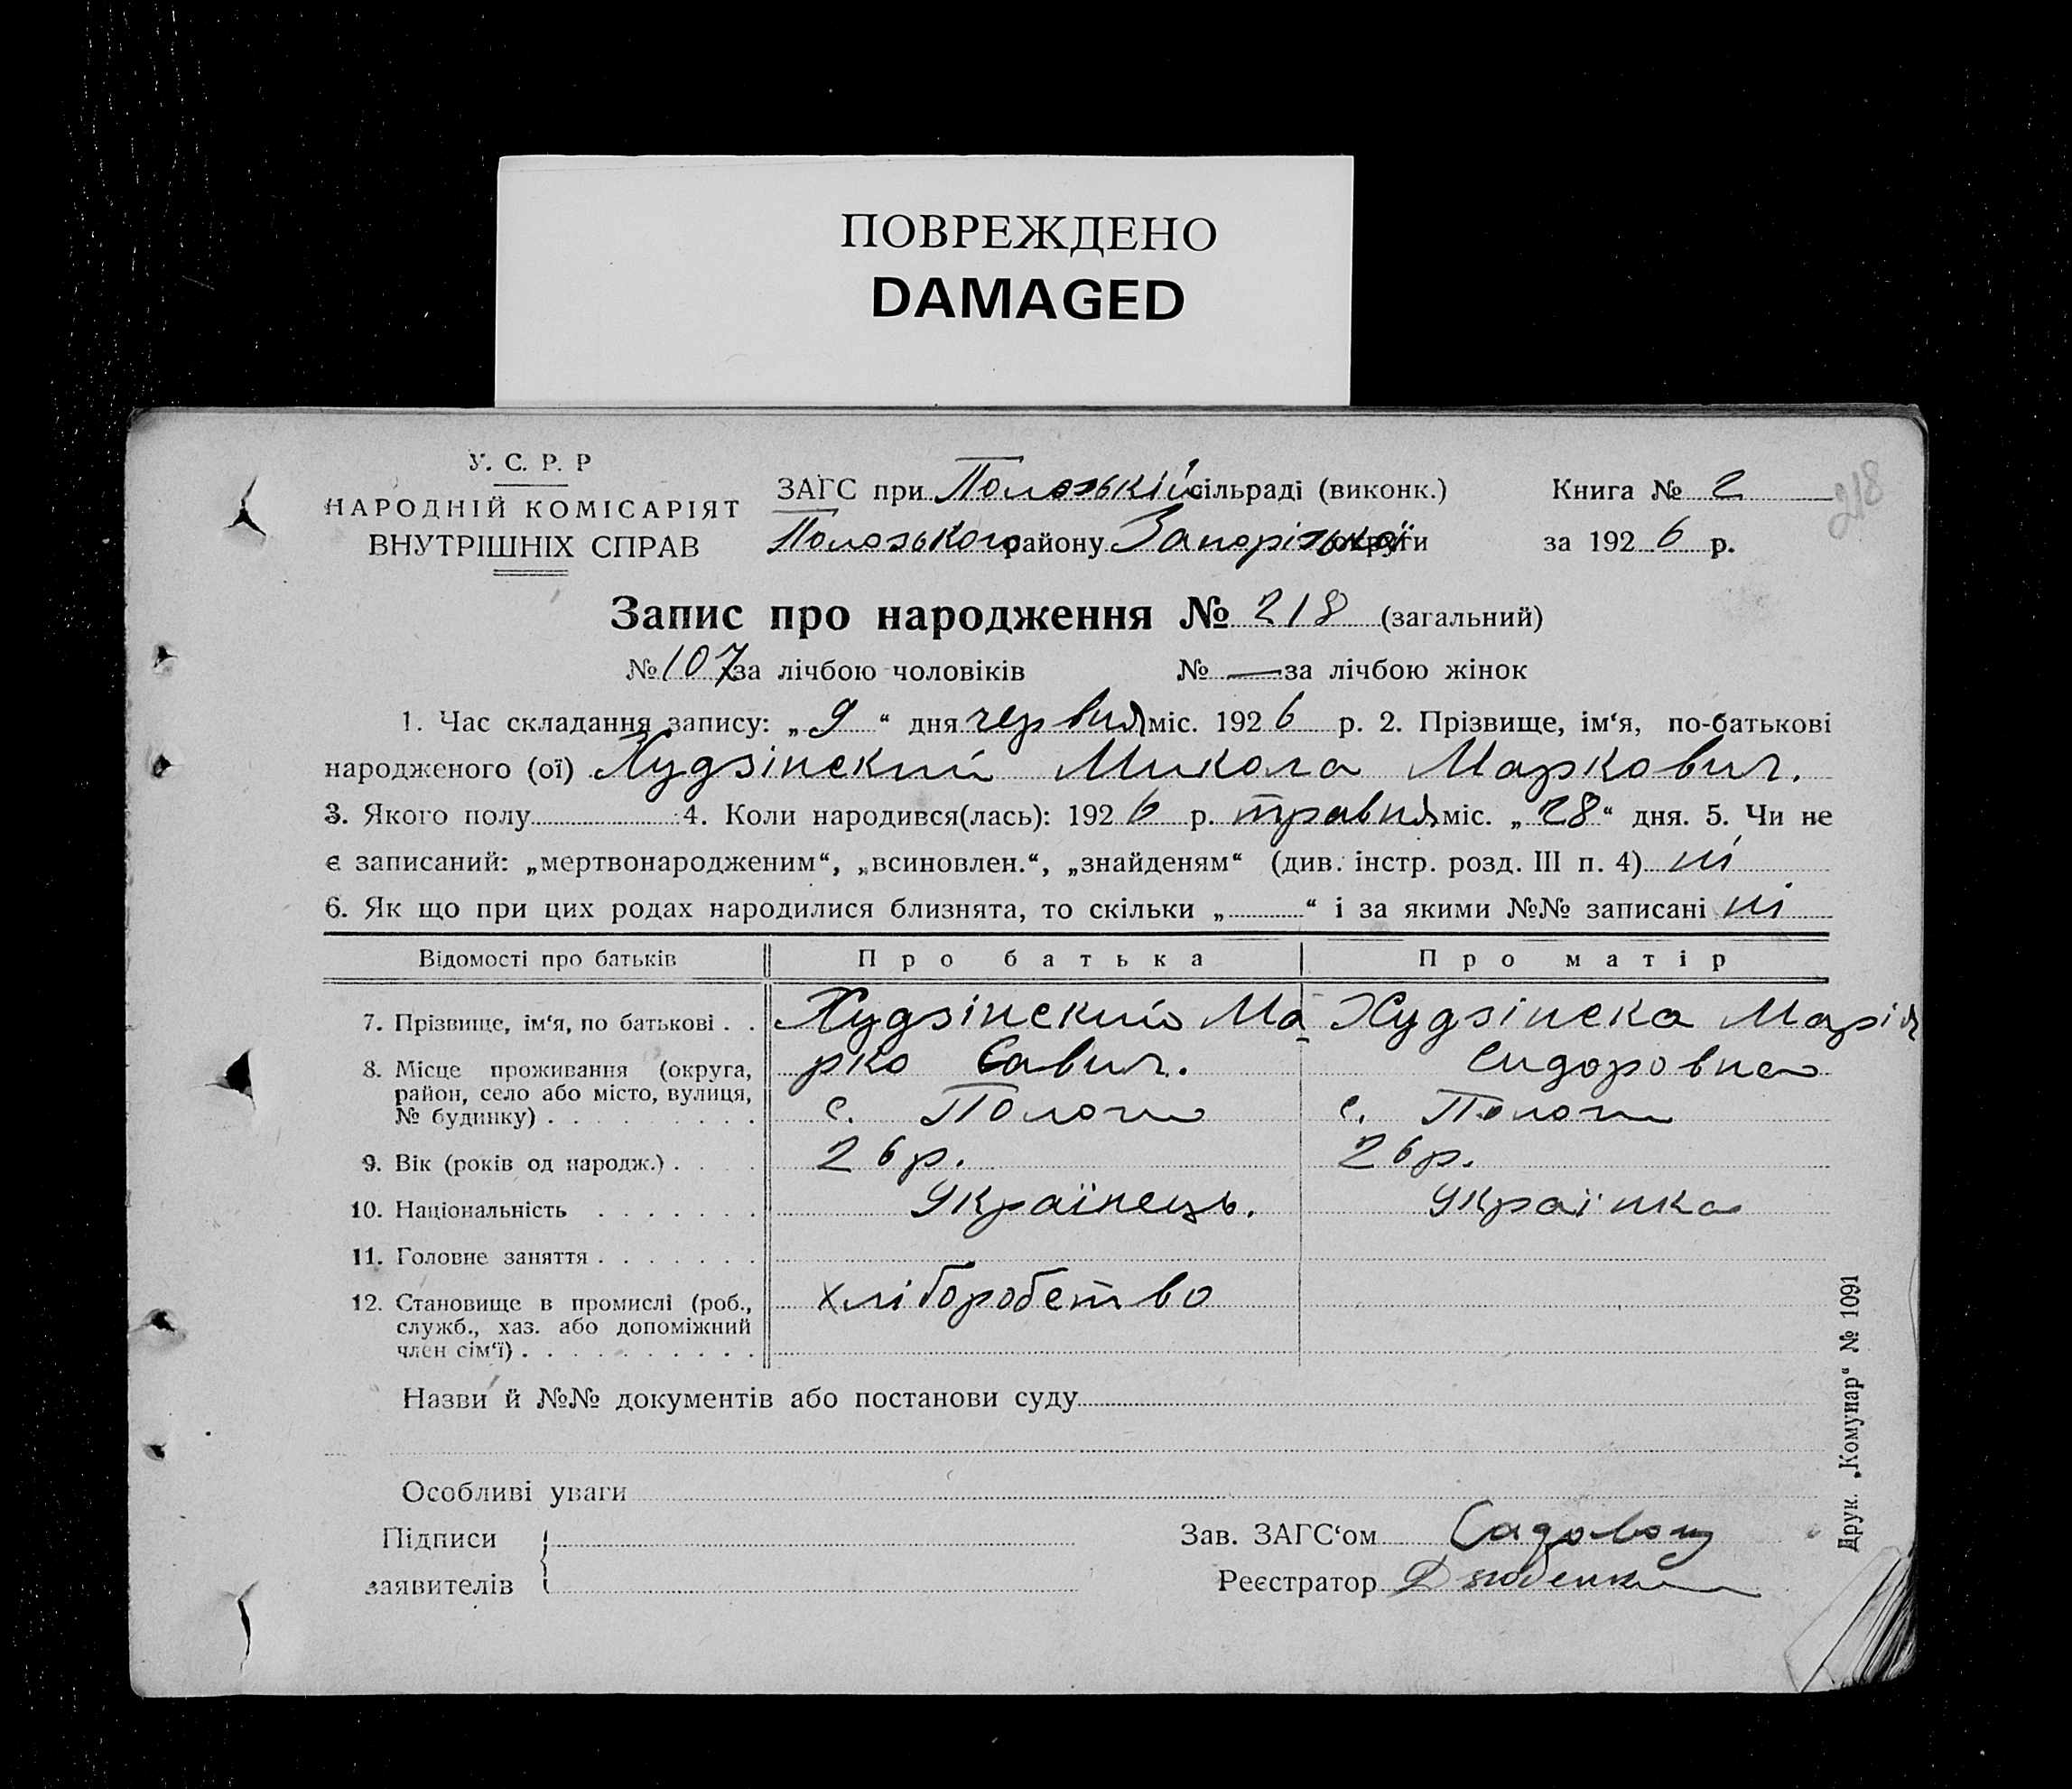 ПОВРЕЖДЕНО
DAMAGED
У. С. Р. Р
НАРОДНІЙ КОМІСАРІЯТ
ВНУТРІШНІХ СПРАВ
ЗАГС при Пологській сільраді (виконк.) Книга № 2
218
Пологського району Запорізької округи за 1926 р.
Запис про народження № 218 (загальний)
№ 107 за лічбою чоловіків № — за лічбою жінок
1. Час складання запису: „9“ дня червня міс. 1926 р. 2. Прізвище, ім‘я, по-батькові
народженого (ої) Худзінский Микола Маркович.
3. Якого полу 4. Коли народився(лась): 1926 р. травня міс. „28“ дня. 5. Чи не
є записаний: „мертвонародженим“, „всиновлен.“, „знайденям“ (див. інстр. розд. III п. 4) ні
6. Як що при цих родах народилися близнята, то скільки „ “ і за якими №№ записані ні
Відомості про батьків Про батька Про матір
7. Прізвище, ім‘я, по батькові . . Худзінский Ма Худзінска Марія
8. Місце проживання (округа, рко Савич. Сидоровна
район, село або місто, вулиця,
№ будинку) . . . . . . . . . с. Пологи с. Пологи
9. Вік (років од народж.) . . . . 26 р. 26 р.
10. Національність . . . . . . . Українець. Українка
11. Головне заняття . . . . . . .
12. Становище в промислі (роб., хліборобство
служб., хаз. або допоміжний
член сім‘ї) . . . . . . . . . .
Назви й №№ документів або постанови суду
Особливі уваги
Підписи
заявителів
Зав. ЗАГС‘ом
Реєстратор
Друк. „Комунар“ № 1091